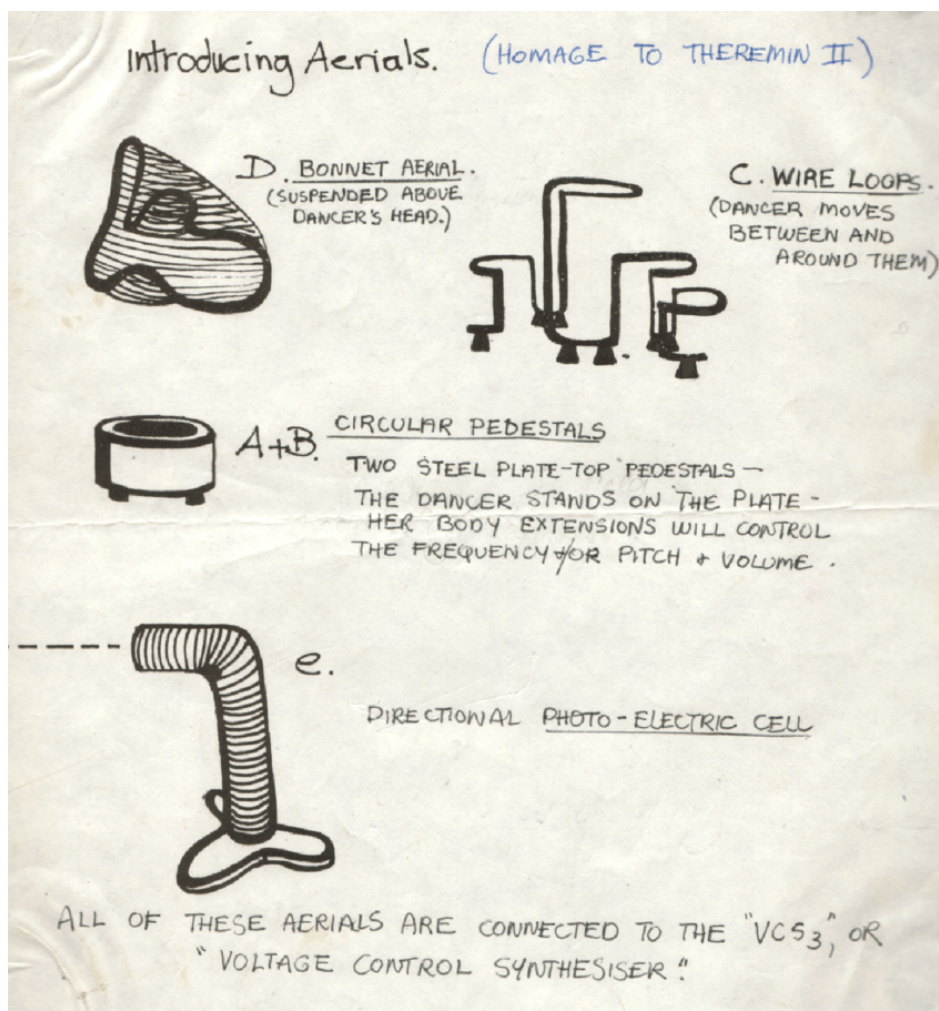 Introducing Aerials. (HOMAGE TO THEREMIN II)
D. BONNET AERIAL.
(SUSPENDED ABOVE
DANCER'S HEAD.)
C. WIRE LOOPS.
(DANCER MOVES
BETWEEN AND
AROUND THEM)
A+B. CIRCULAR PEDESTALS
TWO STEEL PLATE-TOP PEDESTALS —
THE DANCER STANDS ON THE PLATE -
HER BODY EXTENSIONS WILL CONTROL
THE FREQUENCY +/OR PITCH + VOLUME.
e.
DIRECTIONAL PHOTO-ELECTRIC CELL
ALL OF THESE AERIALS ARE CONNECTED TO THE "VCS3," OR
"VOLTAGE CONTROL SYNTHESISER."